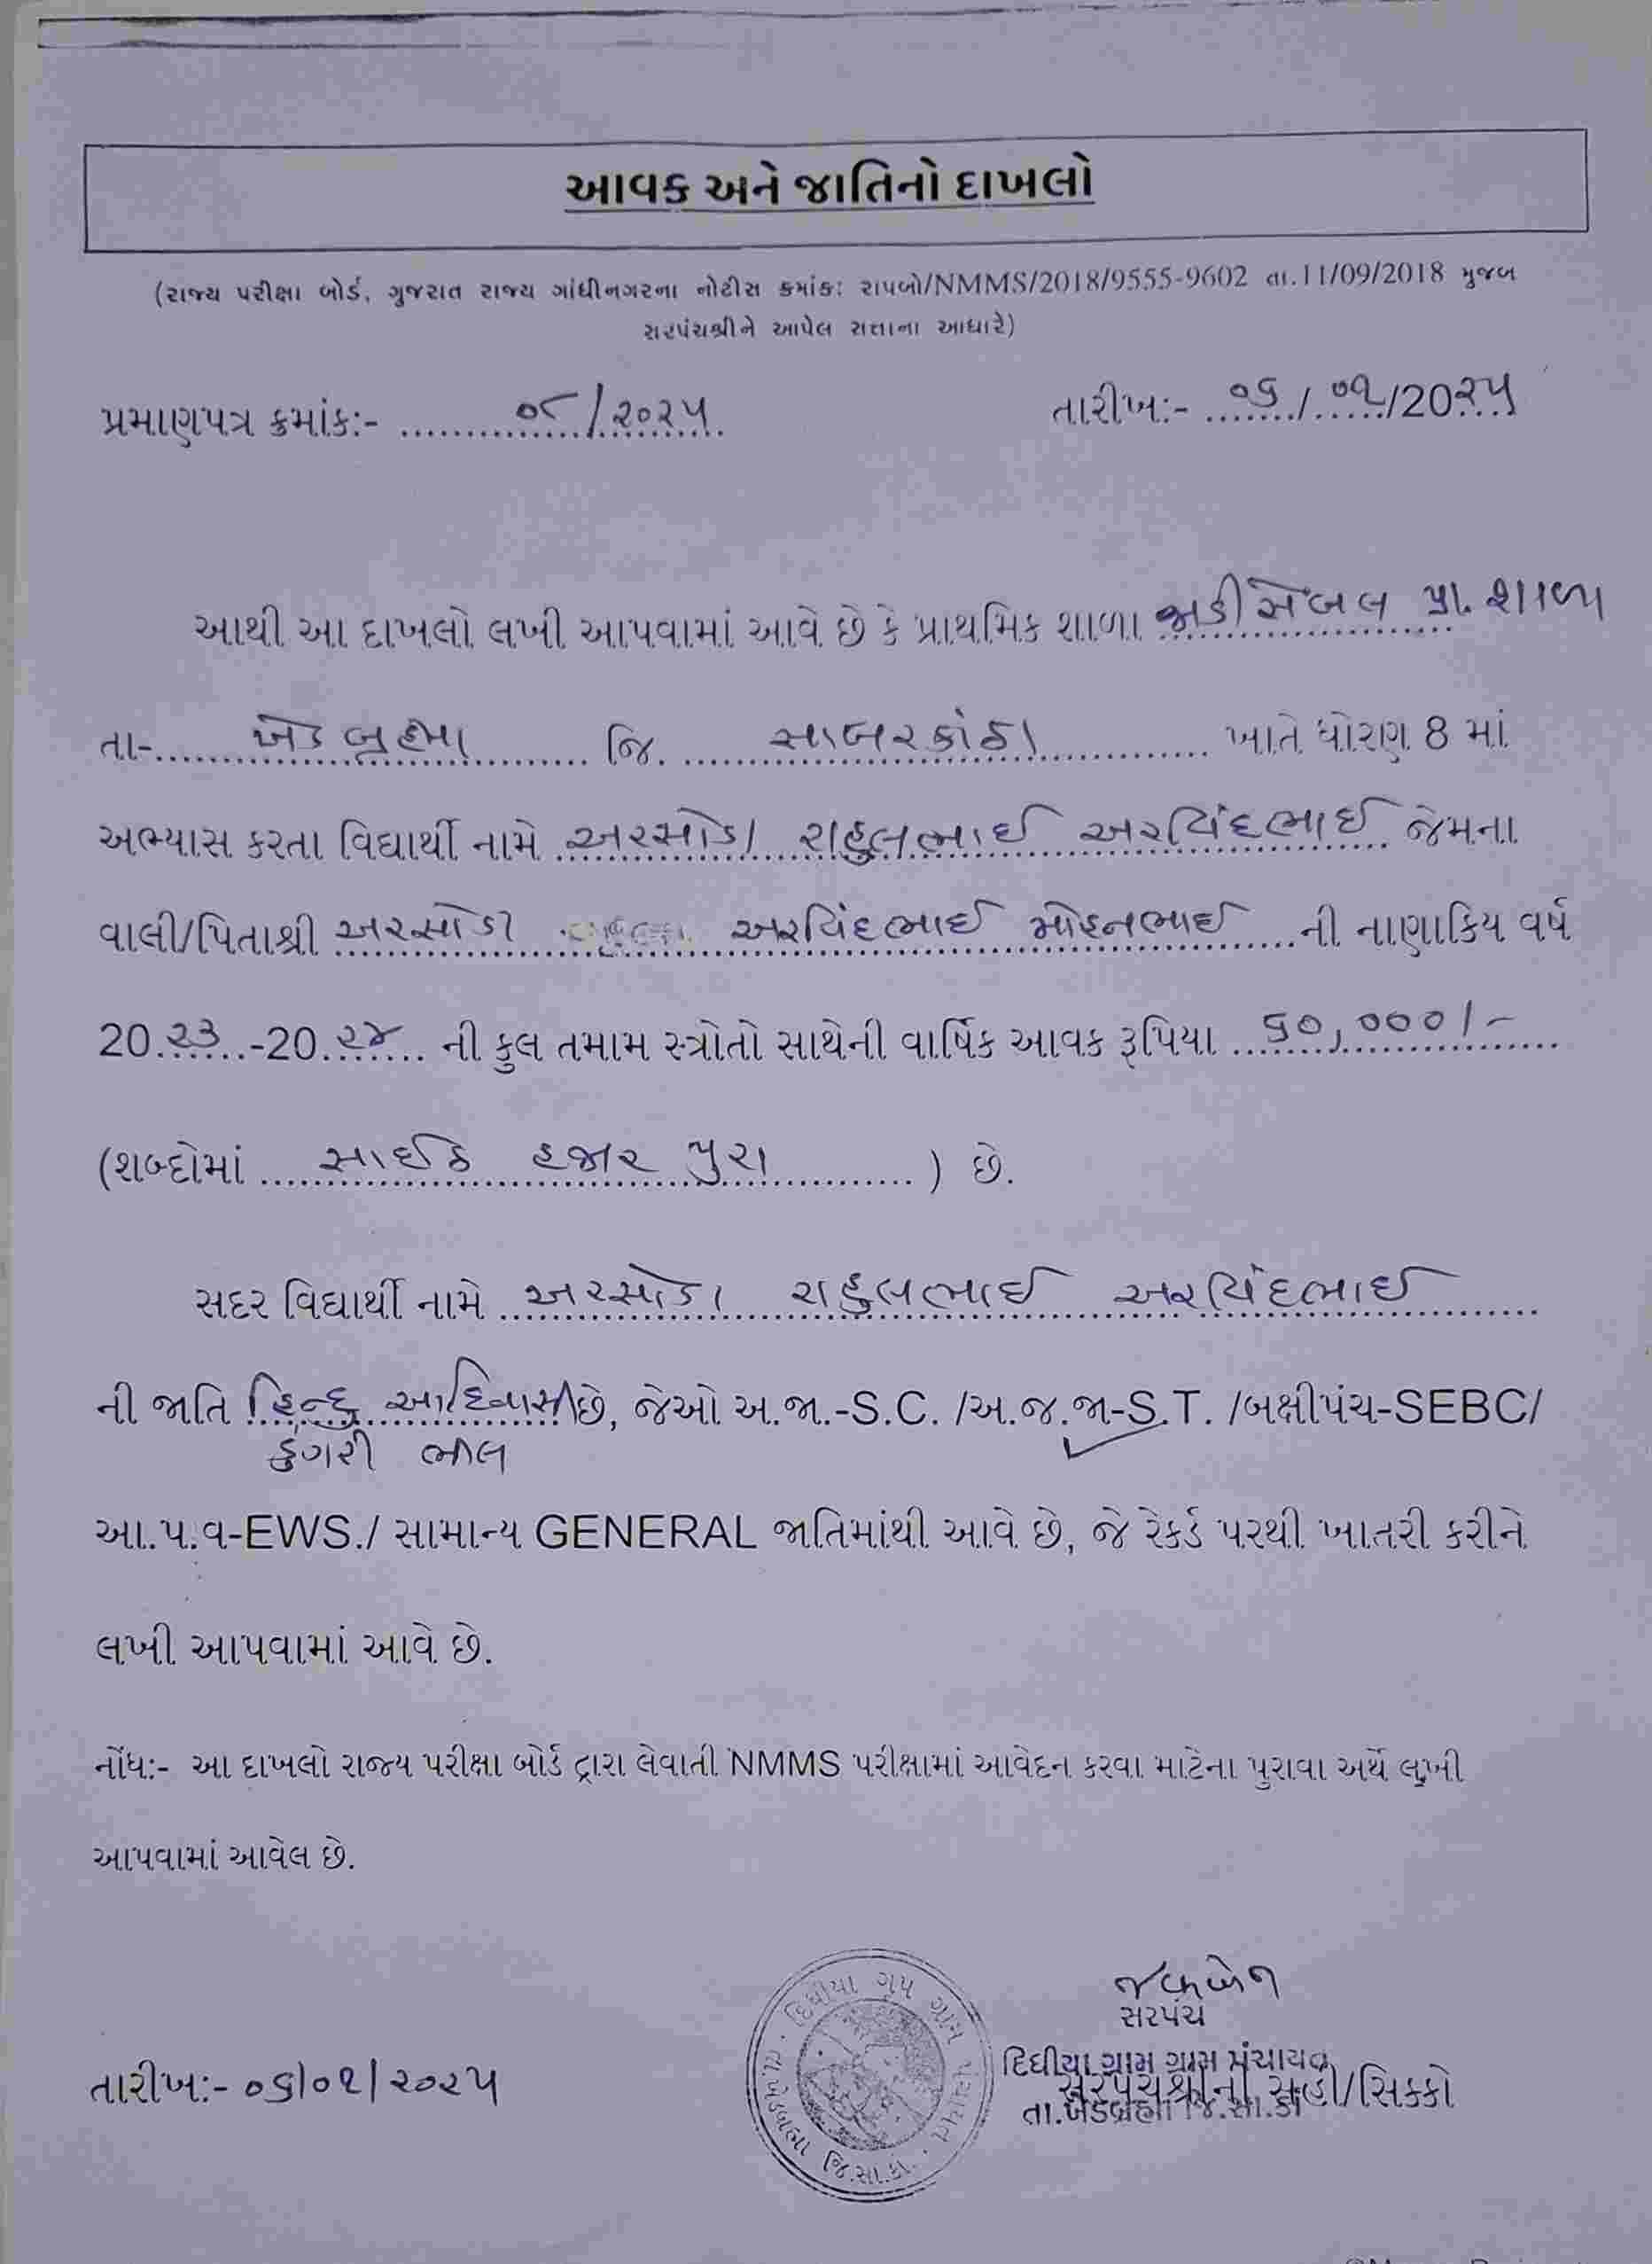 આવક અને જાતિનો દાખલો
(રાજ્ય પરીક્ષા બોર્ડ, ગુજરાત રાજ્ય ગાંધીનગરના નોટીસ ક્રમાંક: રાપબો/NMMS/2018/9555-9602 તા.11/09/2018 મુજબ
સરપંચશ્રીને આપેલ સત્તાના આધારે)
પ્રમાણપત્ર ક્રમાંક:- ૦૮/૨૦૨૫ તારીખ:- ૦૬/૦૧/20૨૫
આથી આ દાખલો લખી આપવામાં આવે છે કે પ્રાથમિક શાળા જાડીસેંબલ પ્રા. શાળા
તા- ખેડબ્રહ્મા જિ. સાબરકાંઠા ખાતે ધોરણ 8 માં
અભ્યાસ કરતા વિદ્યાર્થી નામે અરસોડા રાહુલભાઈ અરવિંદભાઈ જેમના
વાલી/પિતાશ્રી અરસોડા અરવિંદભાઈ મોહનભાઈ ની નાણાકિય વર્ષ
20૨૩-20૨૪ ની કુલ તમામ સ્ત્રોતો સાથેની વાર્ષિક આવક રૂપિયા ૬૦,૦૦૦/-
(શબ્દોમાં સાઈઠ હજાર પુરા ) છે.
સદર વિદ્યાર્થી નામે અરસોડા રાહુલભાઈ અરવિંદભાઈ
ની જાતિ હિન્દુ આદિવાસી છે, જેઓ અ.જા.-S.C. /અ.જ.જા-S.T. /બક્ષીપંચ-SEBC/
ડુંગરી ભીલ
આ.પ.વ-EWS./ સામાન્ય GENERAL જાતિમાંથી આવે છે, જે રેકર્ડ પરથી ખાતરી કરીને
લખી આપવામાં આવે છે.
નોંધ:- આ દાખલો રાજ્ય પરીક્ષા બોર્ડ દ્વારા લેવાતી NMMS પરીક્ષામાં આવેદન કરવા માટેના પુરાવા અર્થે લખી
આપવામાં આવેલ છે.
સરપંચ
દિઘીયા ગ્રુપ ગ્રામ પંચાયત
તા.ખેડબ્રહ્મા જિ.સા.કાં.
દિઘીયા ગ્રામ ગ્રામ પંચાયત
તારીખ:- ૦૬/૦૧/૨૦૨૫ સરપંચશ્રીની સહી/સિક્કો
તા.ખેડબ્રહ્મા જિ.સા.કાં